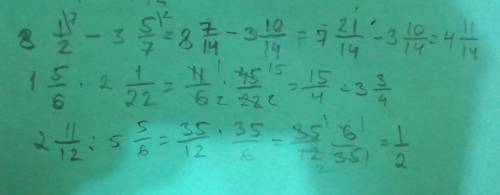 8 1/2 ⁷ - 3 5/7 ² = 8 7/14 - 3 10/14 = 7 21/14 - 3 10/14 = 4 11/14
1 5/6 · 2 1/22 = 11¹/6₂ · 45¹⁵/22₂ = 15/4 = 3 3/4
2 11/12 : 5 5/6 = 35/12 · 35/6 = 35¹/12₂ · 6¹/35₁ = 1/2